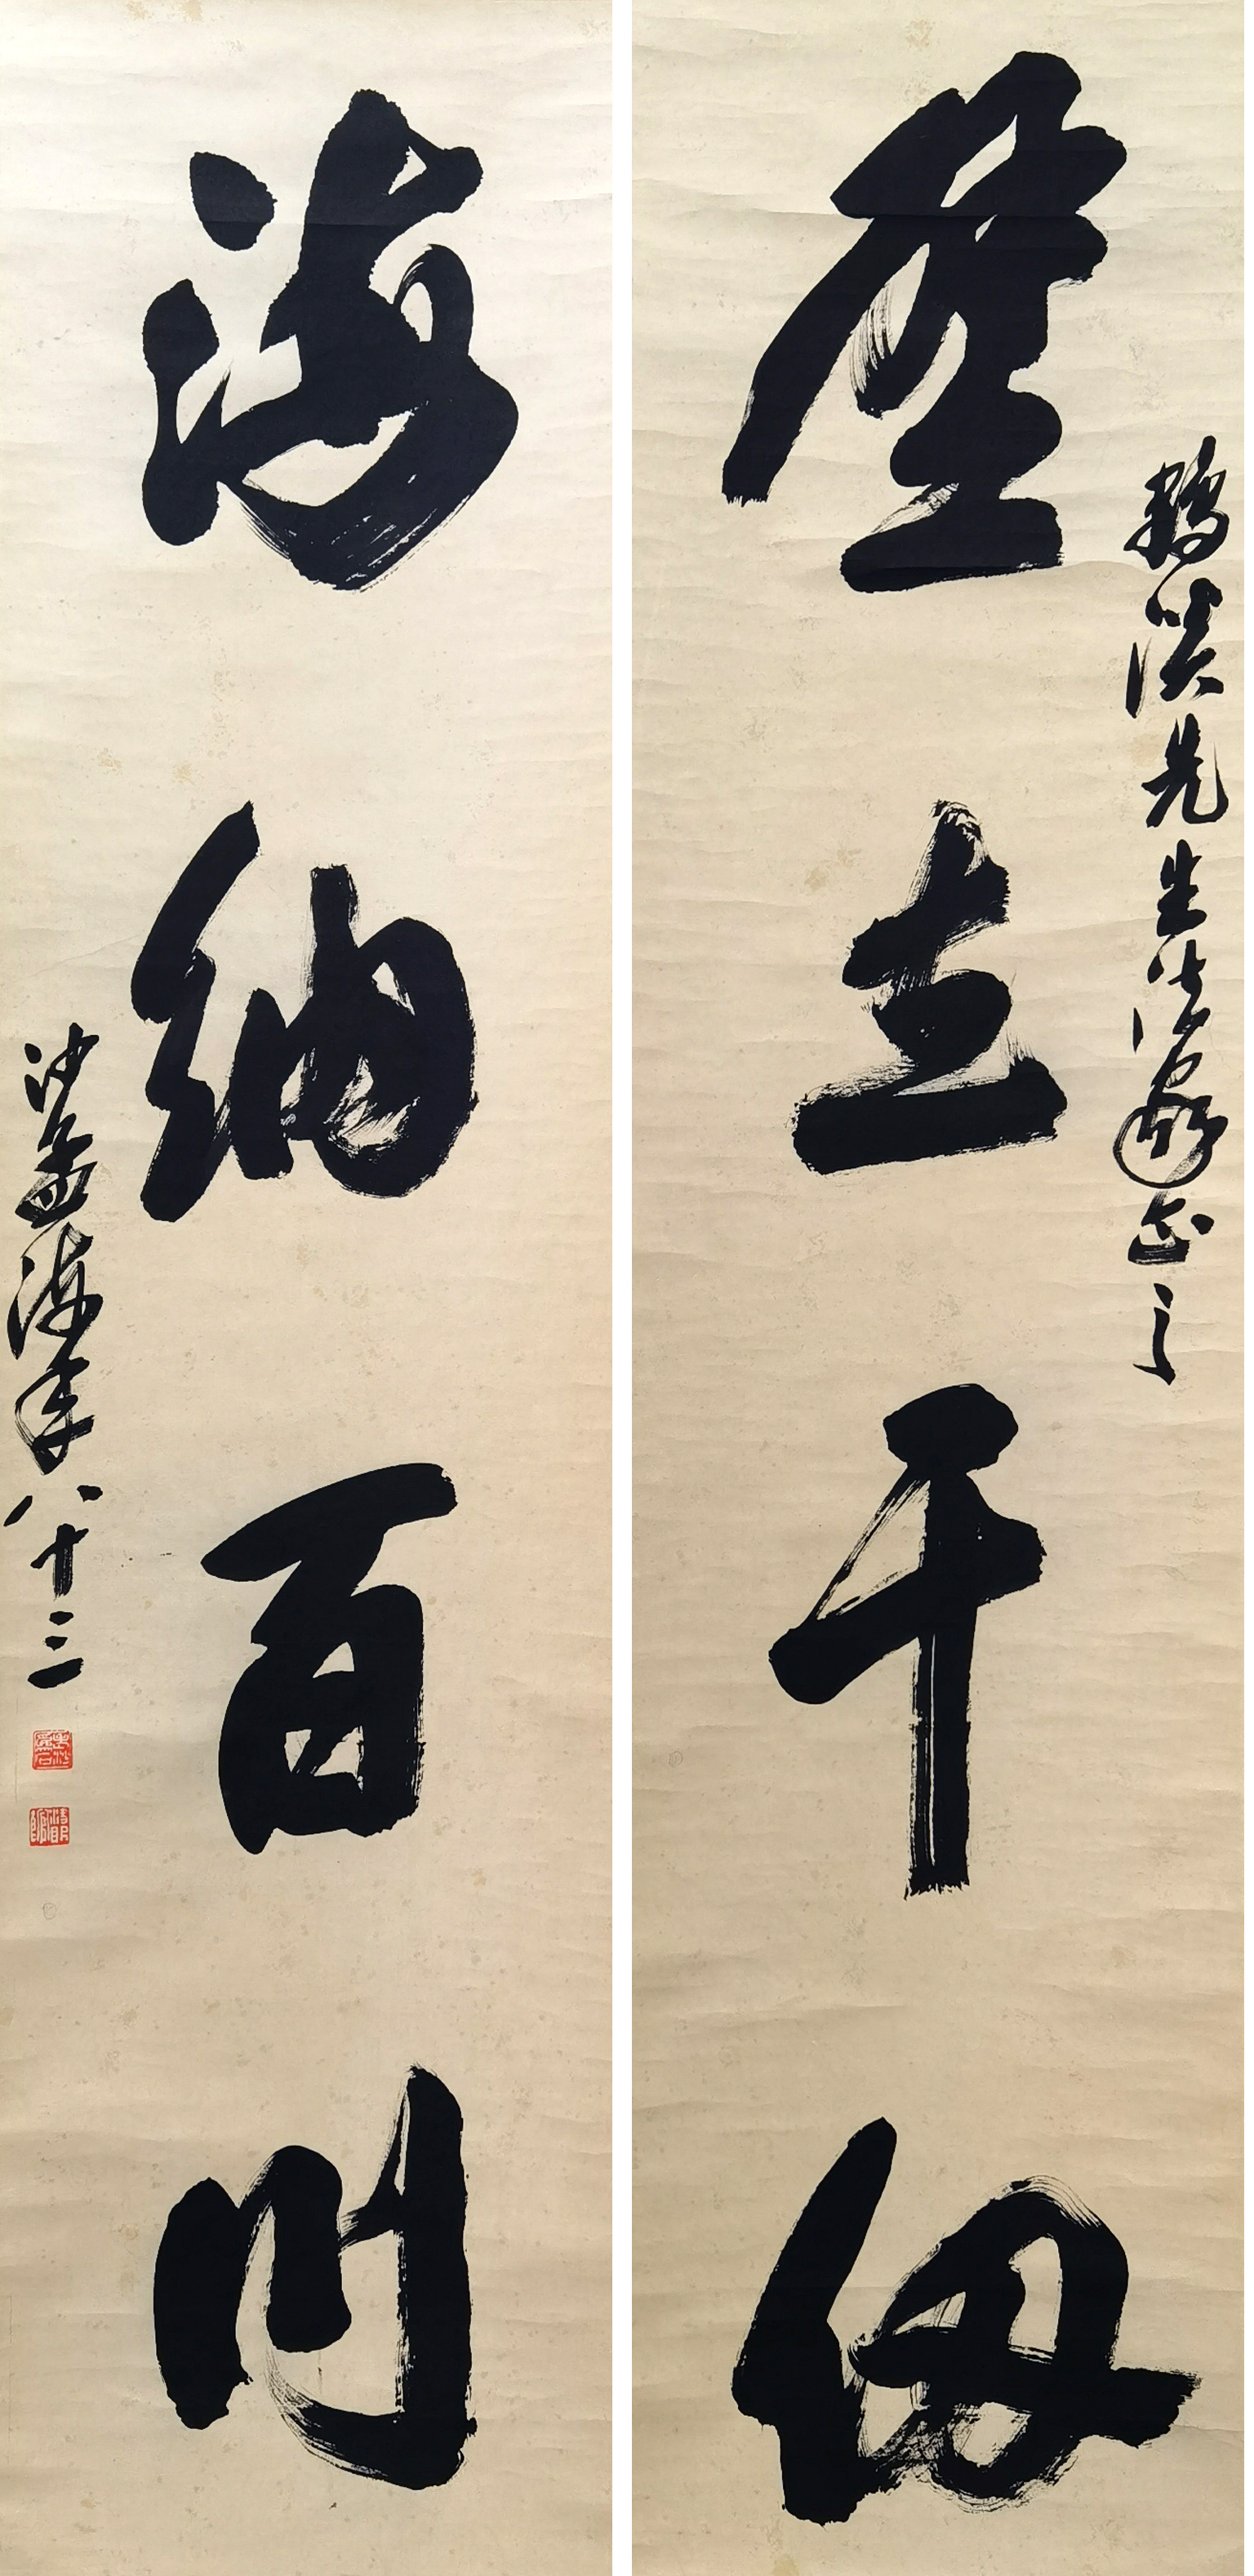 壁立千仞
先生法家正之
海纳百川
沙孟海年八十三